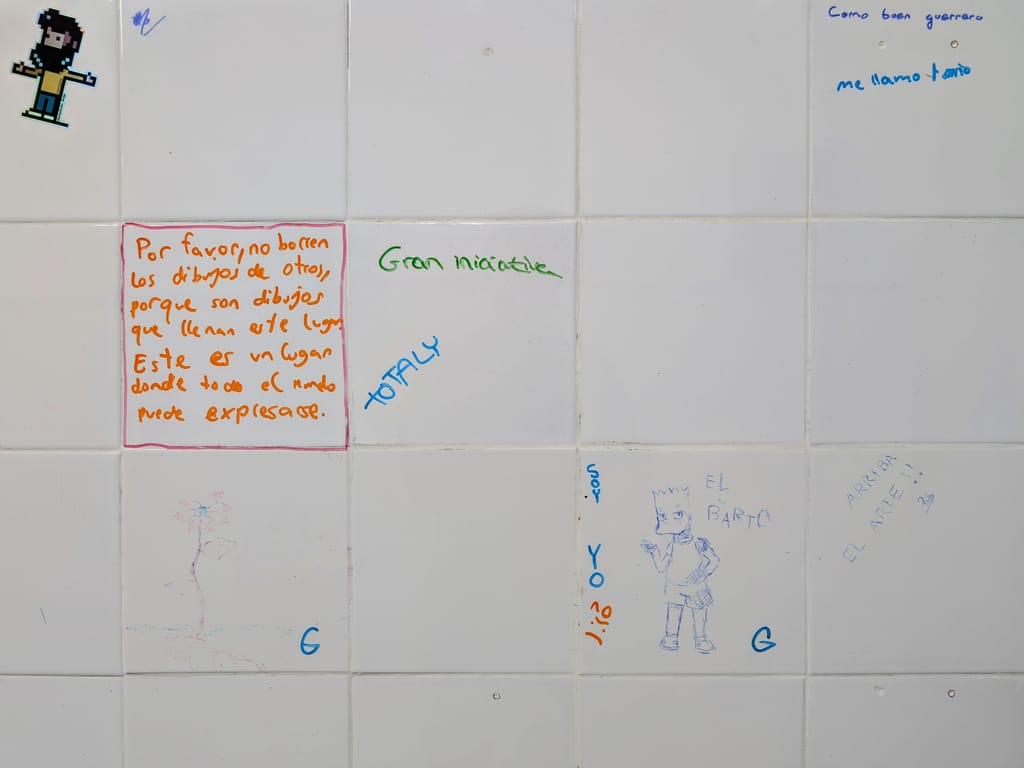 Como buen guerrero
me llamo
Por favor, no borren
los dibujos de otros,
porque son dibujos
que llenan este lugar.
Este es un lugar
donde todo el mundo
puede expresarse.
Gran iniciativa
TOTALY
SOY
YO
EL
BARTO
G
G
ARRIBA
EL ARTE!!